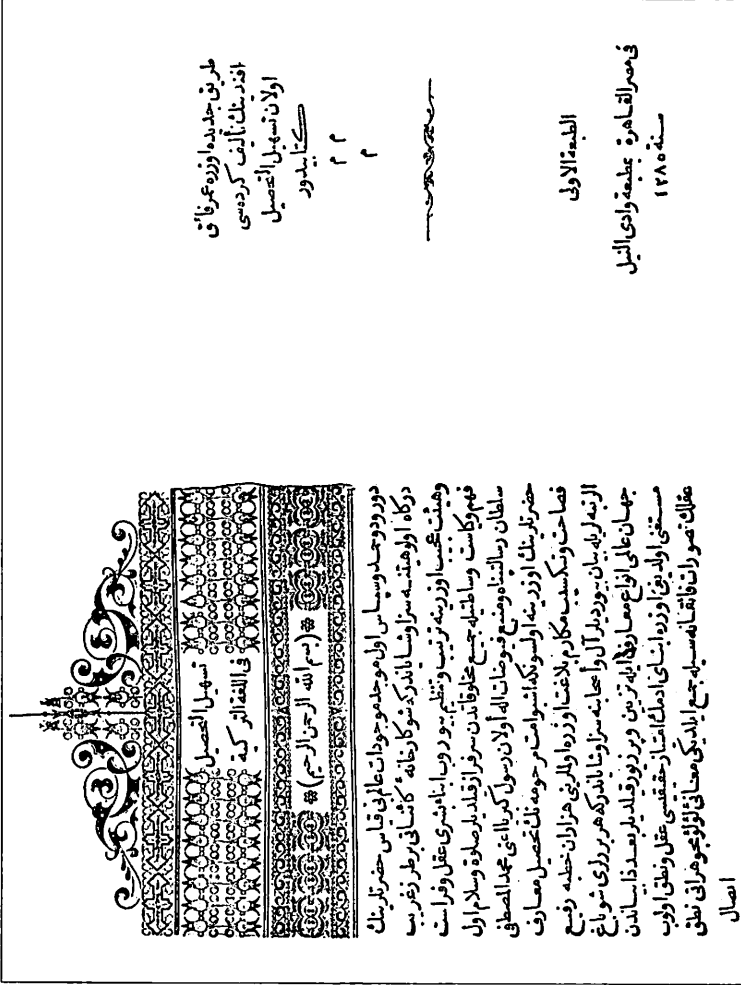 طريق جديده اوزره عمر فائق
افندينك تأليف كرده سى
اولان تسهيل التحصيل
كتابيدور
م م
م
الطبعة الاولى
فى مصر القاهرة بمطبعة وادى النيل
سنة ١٢٨٥
تسهيل التحصيل
فى اللغة التركية
(بسم الله الرحمن الرحيم)
درود وحمد وسپاس اول موجد موجودات عالم فى قياس حضرتلرينك
دركاه الوهيتنه سزا وشاياندركه شو كارخانهٔ كائناتى بر طرز غريب
وهيئت عجيب اوزرينه ترتيب وتنظيم بيوروب ابناء بشرى عقل وفراست
فهم وكياست وساطتيله جميع مخلوقاتدن سرفراز قلديلر صلوة وسلام اول
سلطان رسالتپناه ومنبع فيوضات اله اولان رسول كبريا اعنى محمد المصطفى
حضرتلرينك اوزرينه اولسونكه اشبو امت مرحومه نك تحصيل معارف
فصاحت وتكسب مكارم بلاغت اوزره اولملرينى هزاران خطبه رفيع
الرتبه لريله بيان بيورديلر آل واصحابنه سزا وشاياندركه هر برلرى شو باغ
جهان عالى انواع معارف ايله تزيين وپرزيور قلديلر بعد ذا بيساندن
مستغنى اولديغى اوزره ابناى آدمك امتياز حقيقتسى عقل ونطق اولوب
عقلك تصورات فائقانه سيله جمع ايلديكى معانى لؤلؤ جوهرانى نطق
اتصال